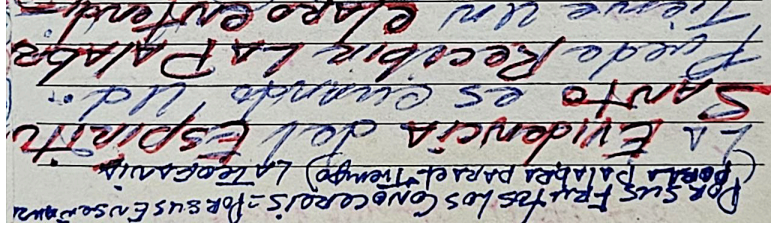 POR SUS FRUTOS LOS CONOCEREIS = POR SUS ENSEÑANZ
(POR LA PALABRA PARA EL TIEMPO) LA TEOFANIA
LA EVIDENCIA del ESPIRITU
SANTO es cuando Ud.
Puede Recibir LA PALABR
Tiene un CLARO entend